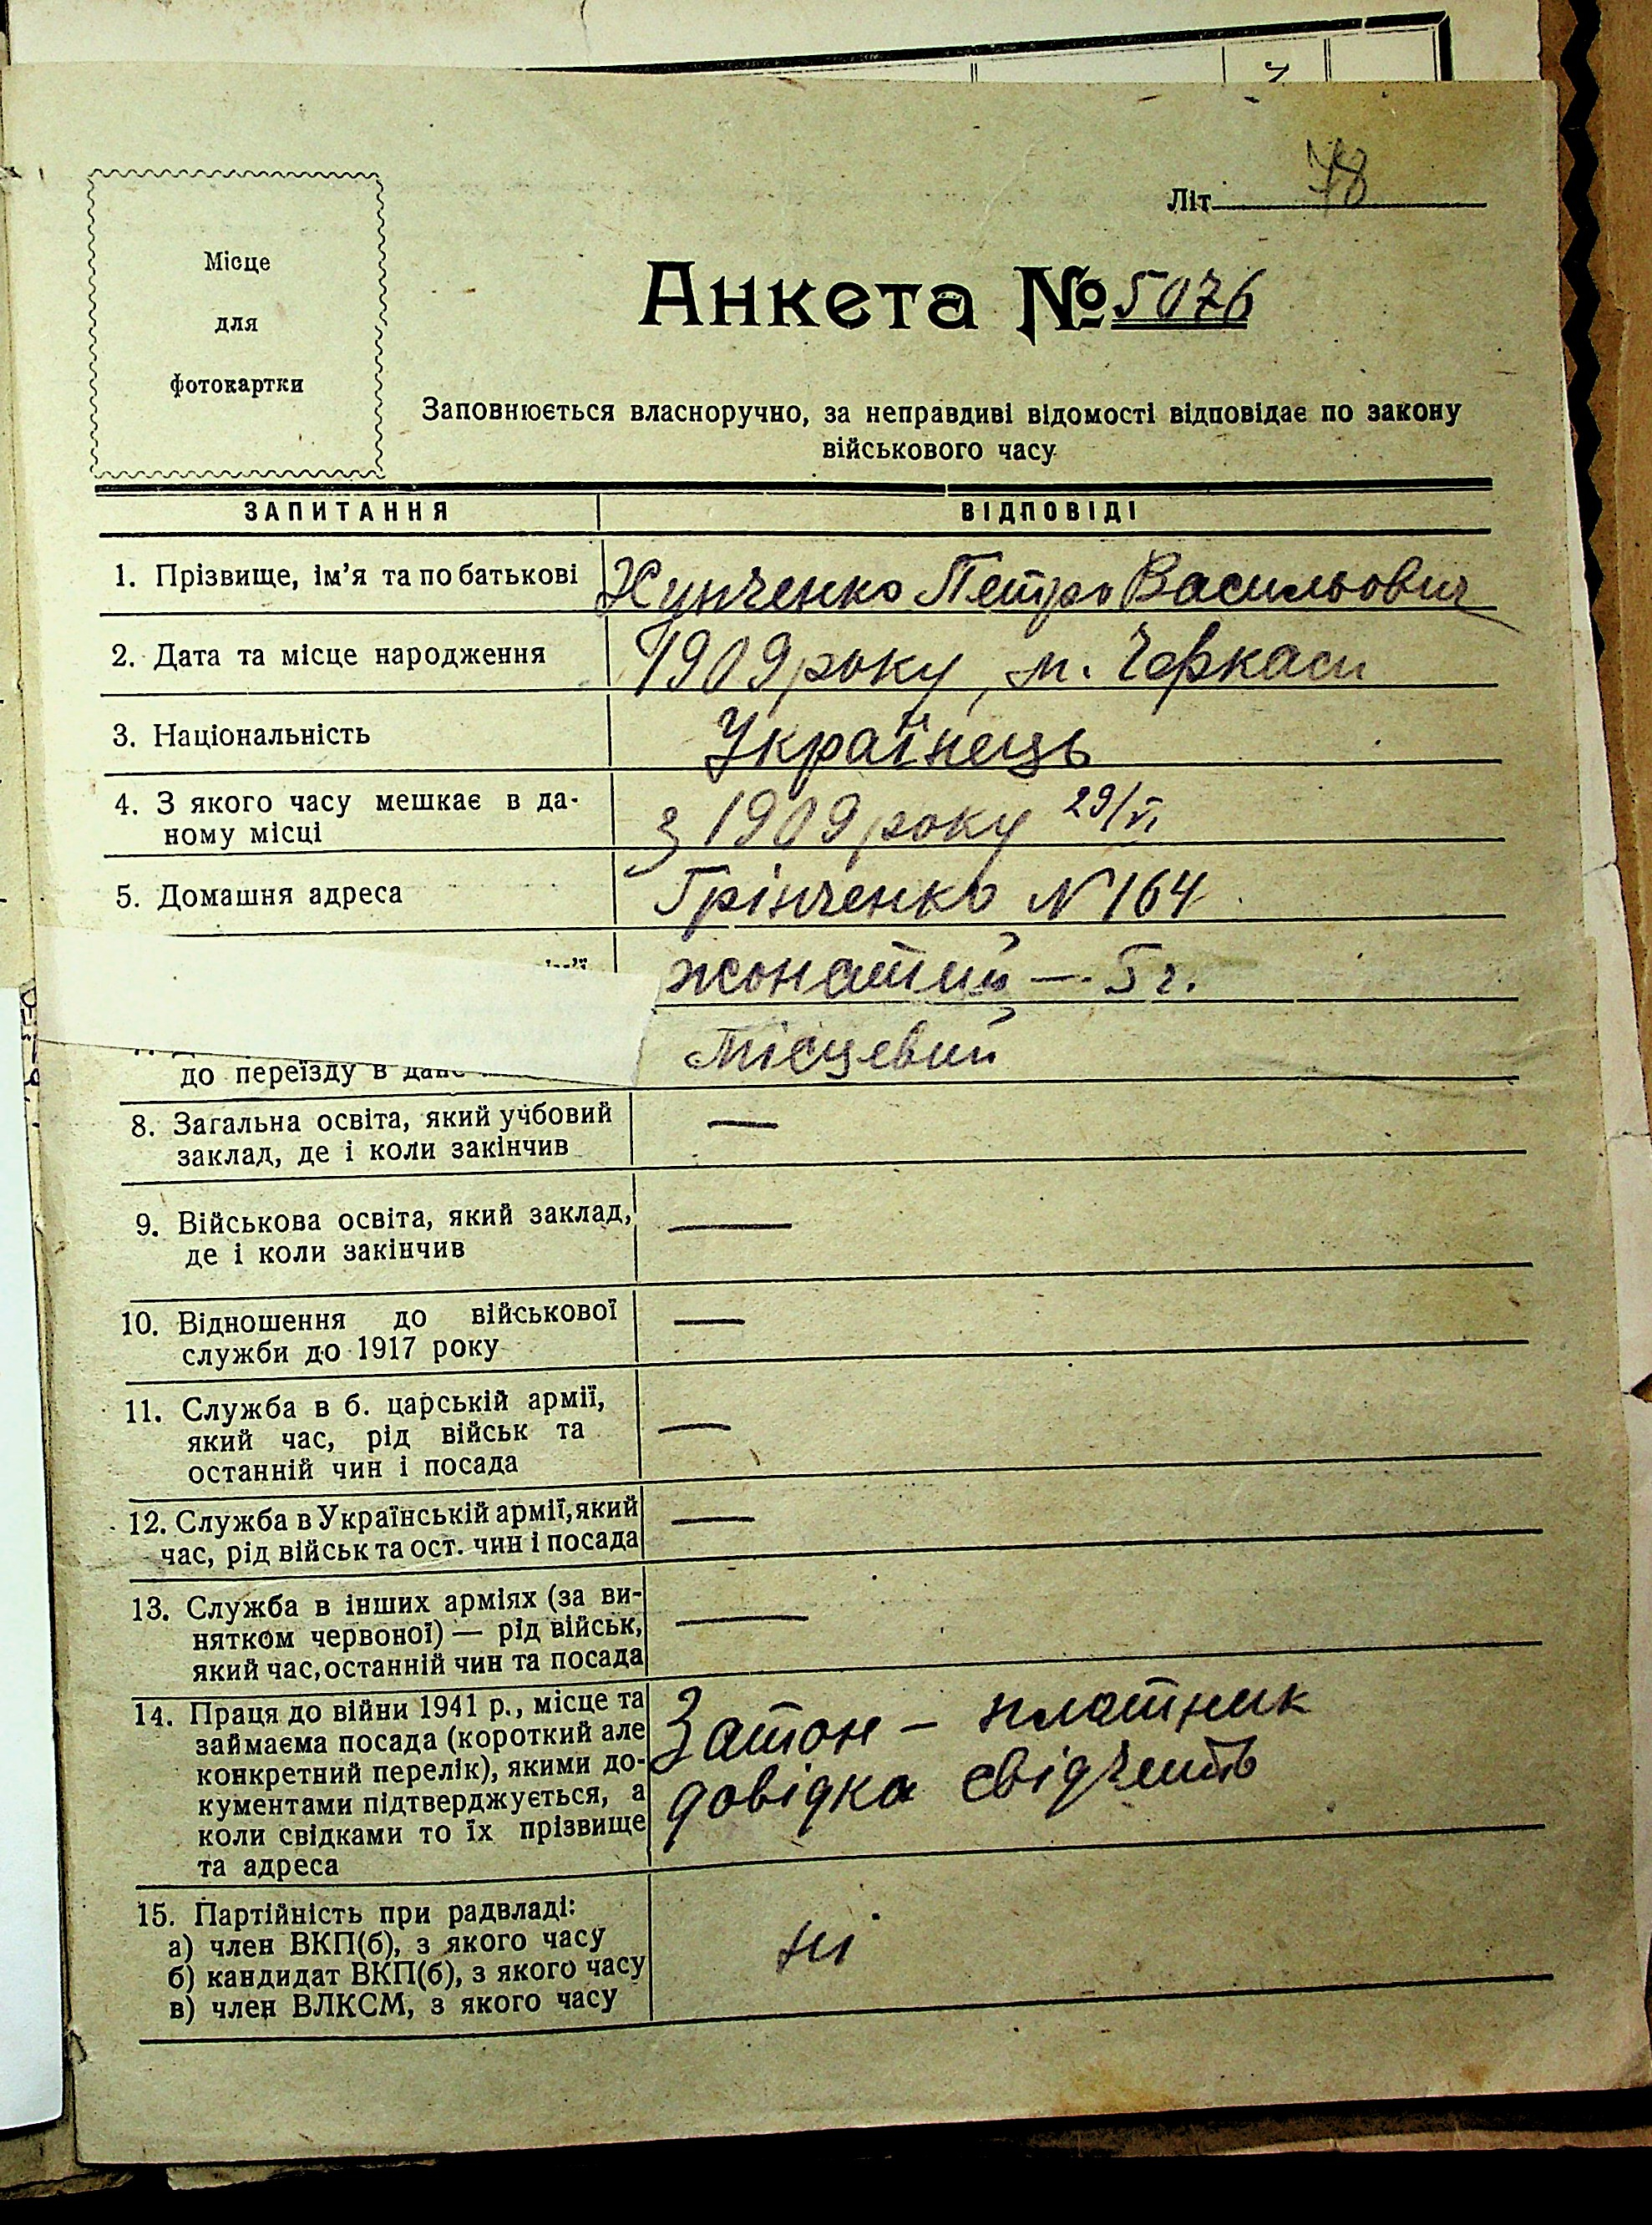 Літ 78
Місце
для
фотокартки
Анкета № 5076
Заповнюється власноручно, за неправдиві відомості відповідає по закону
військового часу
ЗАПИТАННЯ ВІДПОВІДІ
1. Прізвище, ім'я та по батькові Петро Васильович
2. Дата та місце народження 1909 року, м. Черкаси
3. Національність Українець
4. З якого часу мешкає в да-
ному місці з 1909 року 29/VI
5. Домашня адреса Грінченко № 164
жонатий — 5 г.
Місцевий
до переїзду в
8. Загальна освіта, який учбовий —
заклад, де і коли закінчив
9. Військова освіта, який заклад, —
де і коли закінчив
10. Відношення до військової —
служби до 1917 року
11. Служба в б. царській армії,
який час, рід військ та —
останній чин і посада
12. Служба в Українській армії, який —
час, рід військ та ост. чин і посада
13. Служба в інших арміях (за ви-
нятком червоної) — рід військ, —
який час, останній чин та посада
14. Праця до війни 1941 р., місце та
займаєма посада (короткий але Затон – платник
конкретний перелік), якими до-
кументами підтверджується, а довідка свідчить
коли свідками то їх прізвище
та адреса
15. Партійність при радвладі:
а) член ВКП(б), з якого часу ні
б) кандидат ВКП(б), з якого часу
в) член ВЛКСМ, з якого часу